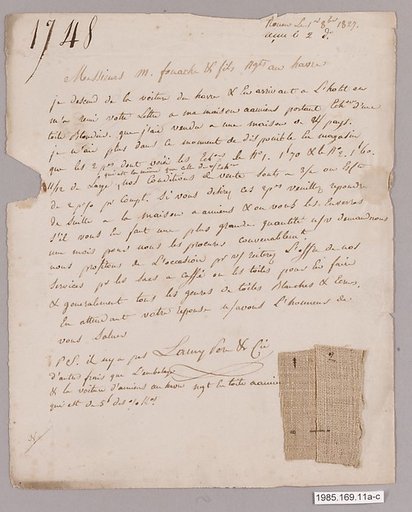 1748
Rouen le 1er 8bre 1827.
reçue le 2 do
Messieurs M. fouache & fils Negts au havre
je descend de la voiture du havre & En arrivant a L'hotel on
m'a remi votre Lettre a ma maison portant Echon d'une
toile Blonde que j'ai vendu a une maison de
je n'ai plus dans ce moment de disponible En magasin
que les 2 ps dont voici les Echons le No 1. 1f70 & le No 2. 1f60.
de Large nos Conditions de vente sont a
de 2 p% pr Compt. Si vous desirez ces 2 ps veuillez repondre
de Suitte a la maison a amiens & on vous les Enverra
S'il vous En faut une plus grande quantité n/s demandons
un mois pour nous les procurer convenablement
nous profitons de L'occasion pr v/s reiterer L'offre de nos
Services pr les Sacs a caffé ou les toiles pour En faire
& generalement tous les genres de toiles Blanches & Ecrues,
En attendant votre reponse n/s avons L'honneur de
vous Saluer
P.S. il n'y a pas
d'autre frais que L'embalage
& la voiture d'amiens au havre
qui est de 5f des % Kos
1 2
1985.169.11a-c